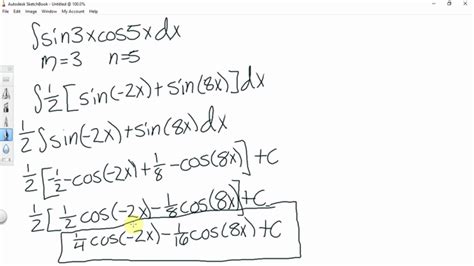 Autodesk SketchBook - Untitled @ 100.0%
File Edit Image Window My Account Help
∫sin3xcos5xdx
m=3 n=5
∫½[sin(-2x)+sin(8x)]dx
½∫sin(-2x)+sin(8x)dx
½[-½-cos(-2x)+⅛-cos(8x)]+C
½[½cos(-2x)-⅛cos(8x)]+C
¼cos(-2x)-1/16cos(8x)+C